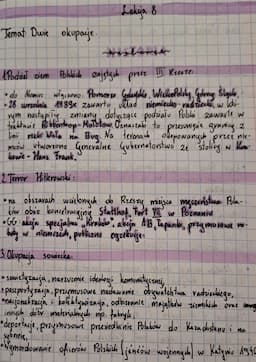 Lekcja 8
Temat Dwie okupacje.
1. Podział ziem Polskich zajętych przez III Rzeszę.
• do Niemiec włączono: Pomorze Gdańskie, Wielkopolskę, Górny Śląsk,
• 28 września 1939r zawarto układ niemiecko-radziecki, w któ-
rym nastąpiły zmiany dotyczące podziału Polski zawarte w
pakcie Ribbentrop-Mołotow. Oznaczało to przesunięcie granicy z
rzeki Wisła na Bug. Na terenach okupowanych przez nie-
mców utworzono Generalne Gubernatorstwo ze stolicą w Kra-
kowie - Hans Frank.
2. Terror Hitlerowski:
• na obszarach wcielonych do Rzeszy miejsca męczeństwa Pola-
ków obóz koncentracyjny Stutthof, Fort VII w Poznaniu
• GG akcja specjalna "Kraków", akcja AB, łapanki, przymusowe ro-
boty w niemczech, publiczne egzekucje.
3. Okupacja sowiecka:
• sowietyzacja, narzucenie ideologii komunistycznej,
• paszportyzacja, przymusowe nadawanie obywatelstwa radzieckiego,
• nacjonalizacja i kolektywizacja, odbieranie majątków ziemskich oraz
innych dóbr materialnych np. fabryk,
• deportacje, przymusowe przesiedlenie Polaków do Kazachstanu i na
• mordowanie oficerów Polskich (jeńców wojennych) w Katyniu 1940